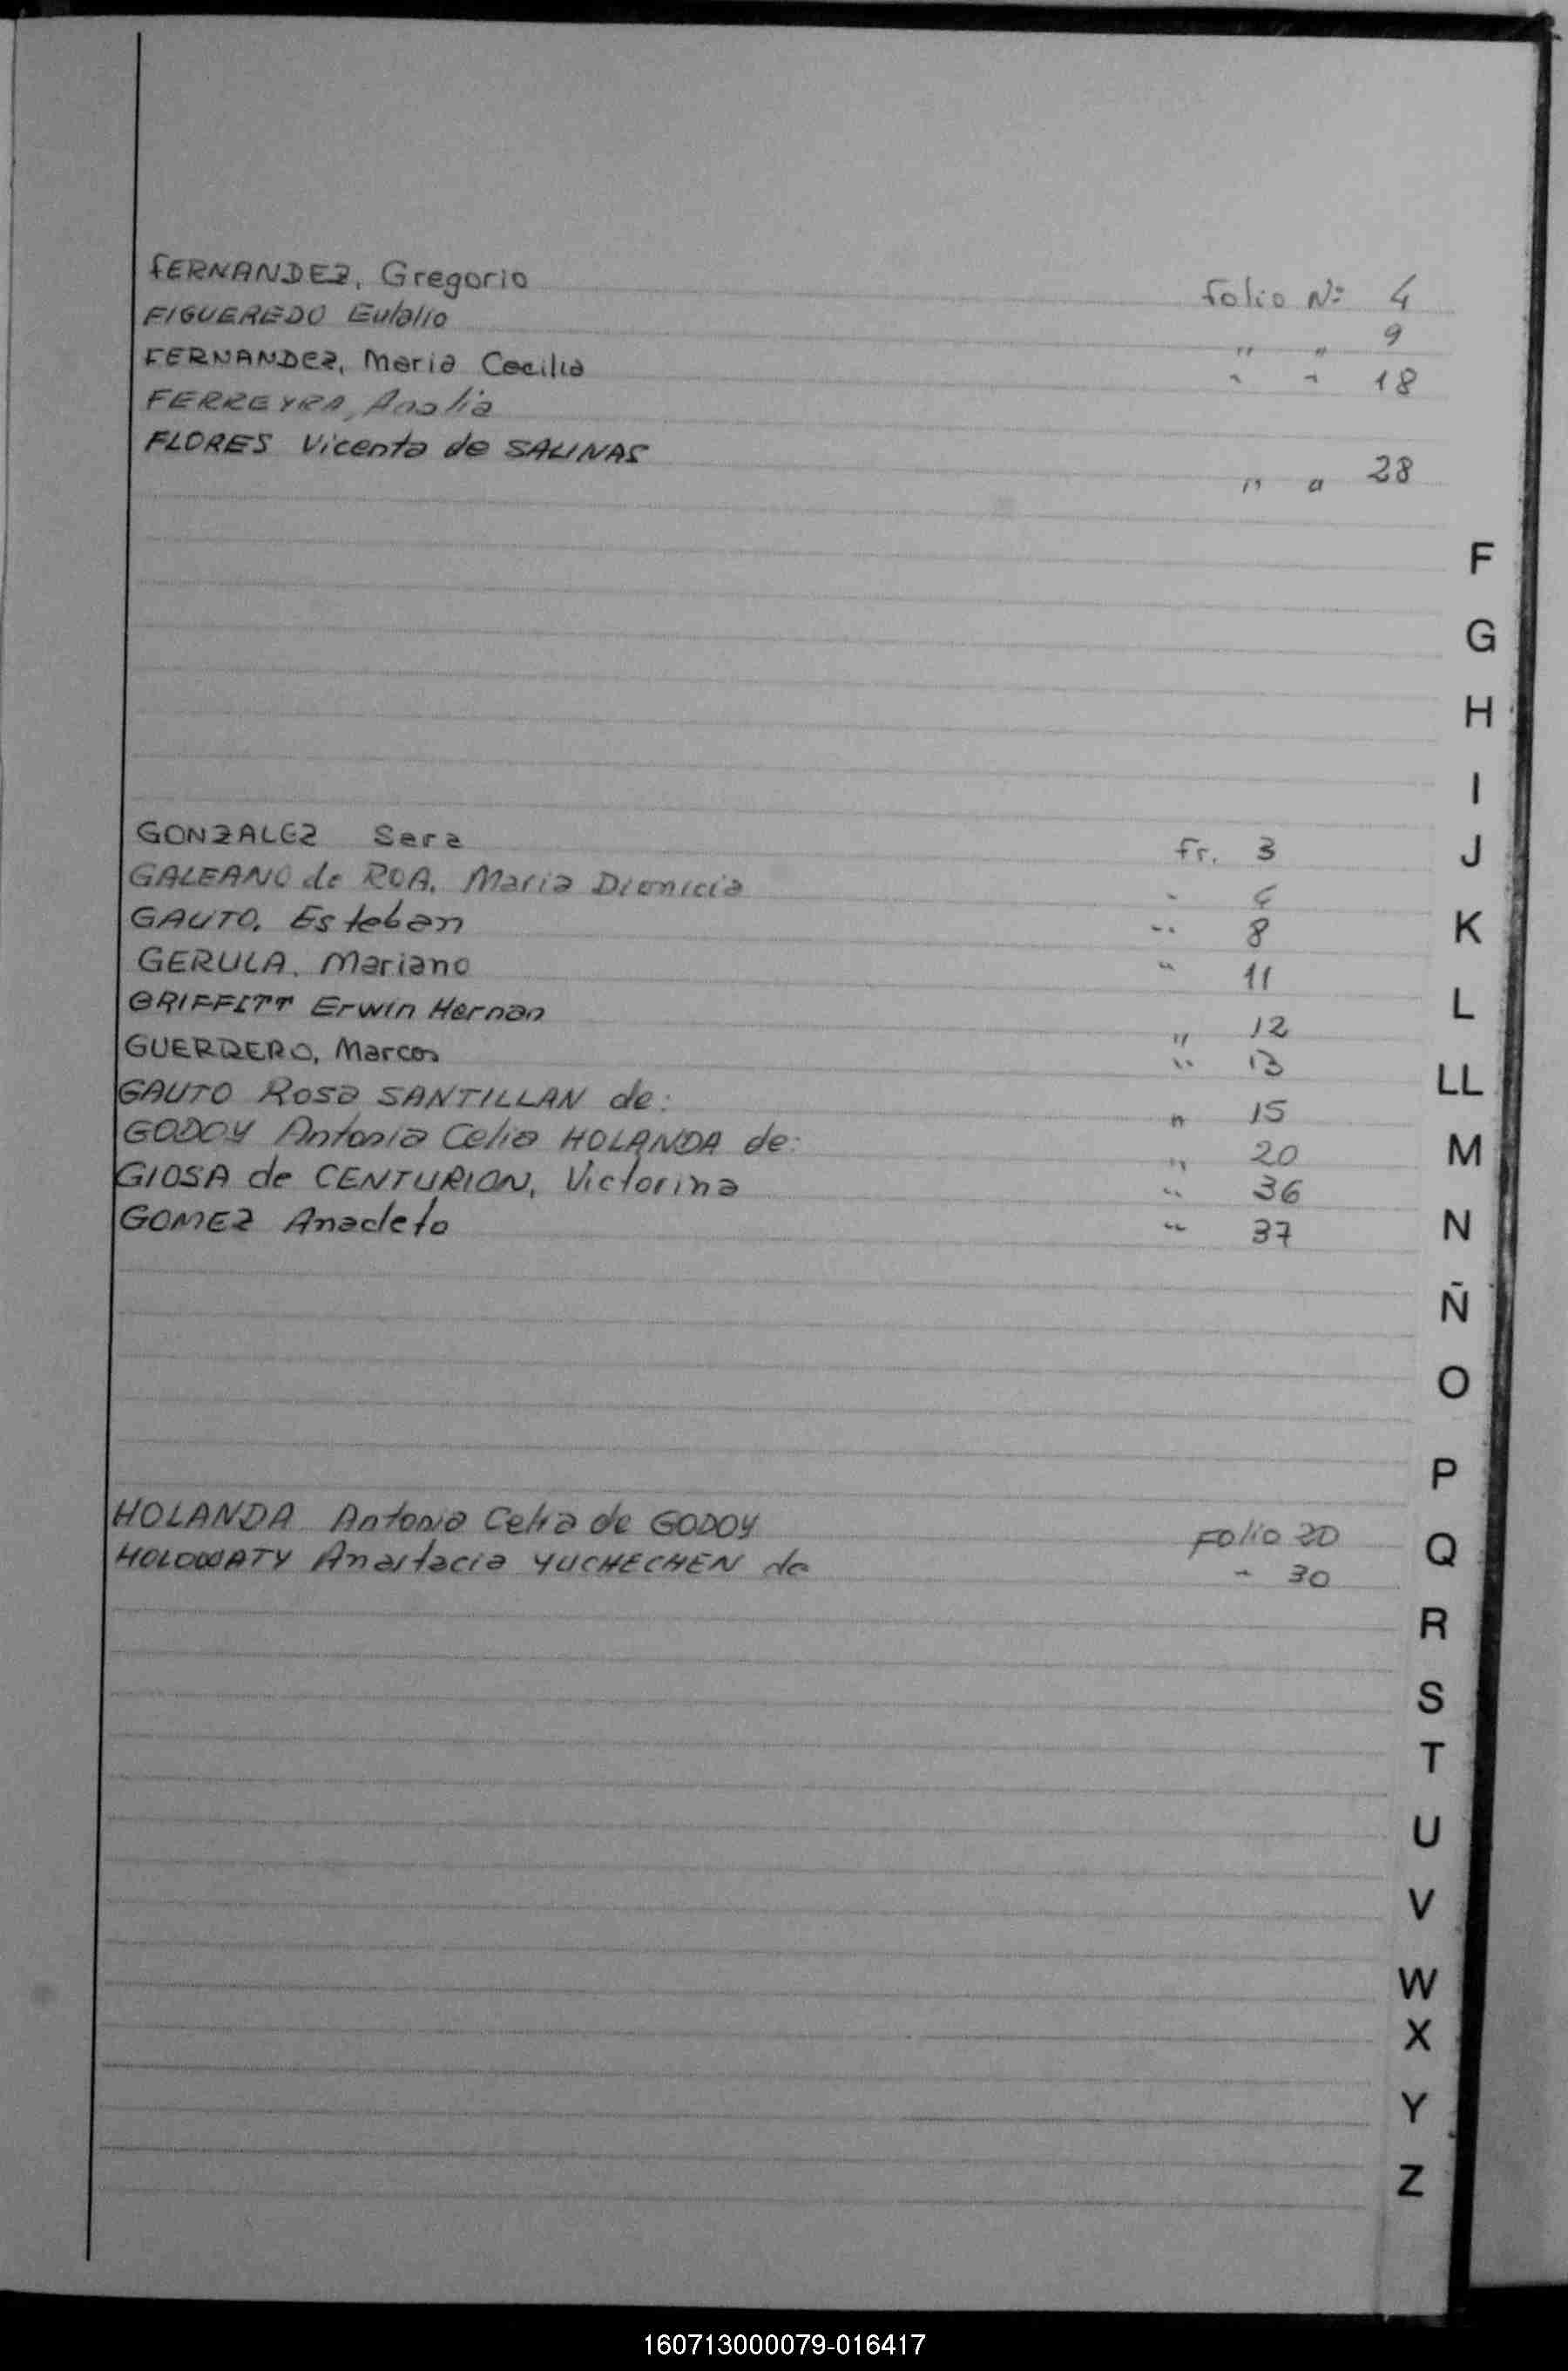 FERNANDEZ, Gregorio Folio Nº 4
FIGUEREDO Eulalio " " 9
FERNANDEZ, Maria Cecilia " " 18
FERREYRA, Analia
FLORES Vicenta de SALINAS " " 28
GONZALEZ Sara Fr. 3
GALEANO de ROA, Maria Dionicia " 4
GAUTO, Esteban " 8
GERULA, Mariano " 11
GRIFFITT Erwin Hernan " 12
GUERRERO, Marcos " 13
GAUTO Rosa SANTILLAN de: " 15
GODOY Antonia Celia HOLANDA de: " 20
GIOSA de CENTURION, Victorina " 36
GOMEZ Anacleto " 37
HOLANDA Antonia Celia de GODOY Folio 20
HOLOWATY Anastacia YUCHECHEN de " 30
F
G
H
I
J
K
L
LL
M
N
Ñ
O
P
Q
R
S
T
U
V
W
X
Y
Z
160713000079-016417